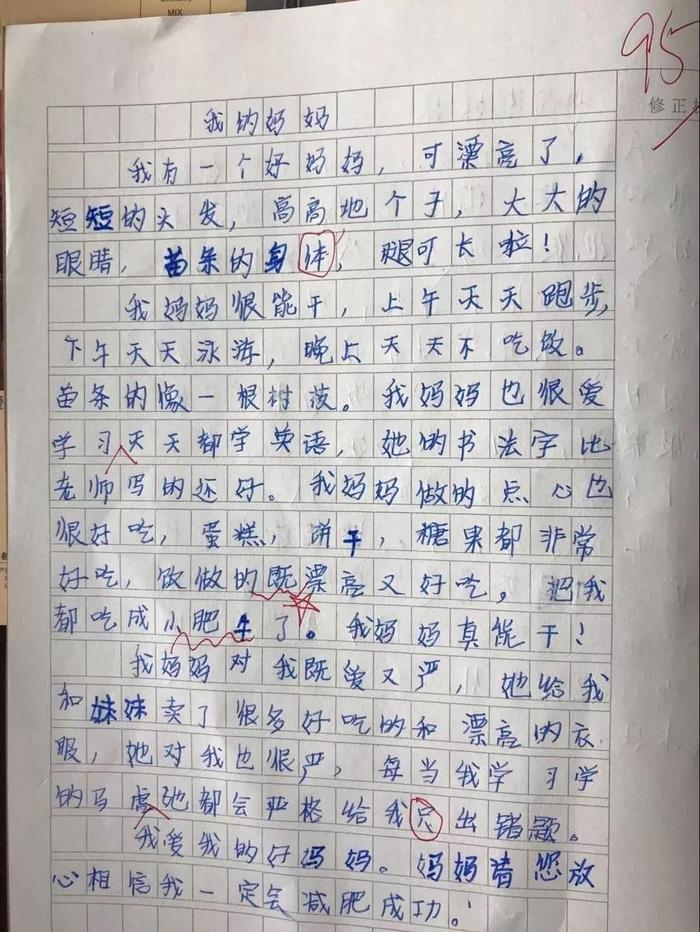 MIX
95
修正
我的妈妈
我有一个好妈妈，可漂亮了，
短短的头发，高高地个子，大大的
眼睛，苗条的身体，腿可长啦！
我妈妈很能干，上午天天跑步，
下午天天泳游，晚上天天不吃饭。
苗条的像一根树枝。我妈妈也很爱
学习天天都学英语，她的书法字比
老师写的还好。我妈妈做的点心也
很好吃，蛋糕，饼干，糖果都非常
好吃，做做的既漂亮又好吃。把我
都吃成小肥牛了。我妈妈真能干！
我妈妈对我既爱又严，她给我
和妹妹卖了很多好吃的和漂亮的衣
服，她对我也很严，每当我学习学
的马虎她都会严格给我只出错题。
我爱我的好妈妈。妈妈请您放
心相信我一定气减肥成功！